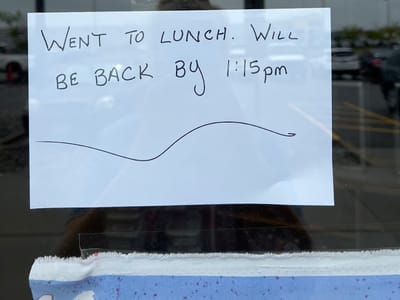 WENT TO LUNCH. WILL
BE BACK BY 1:15pm